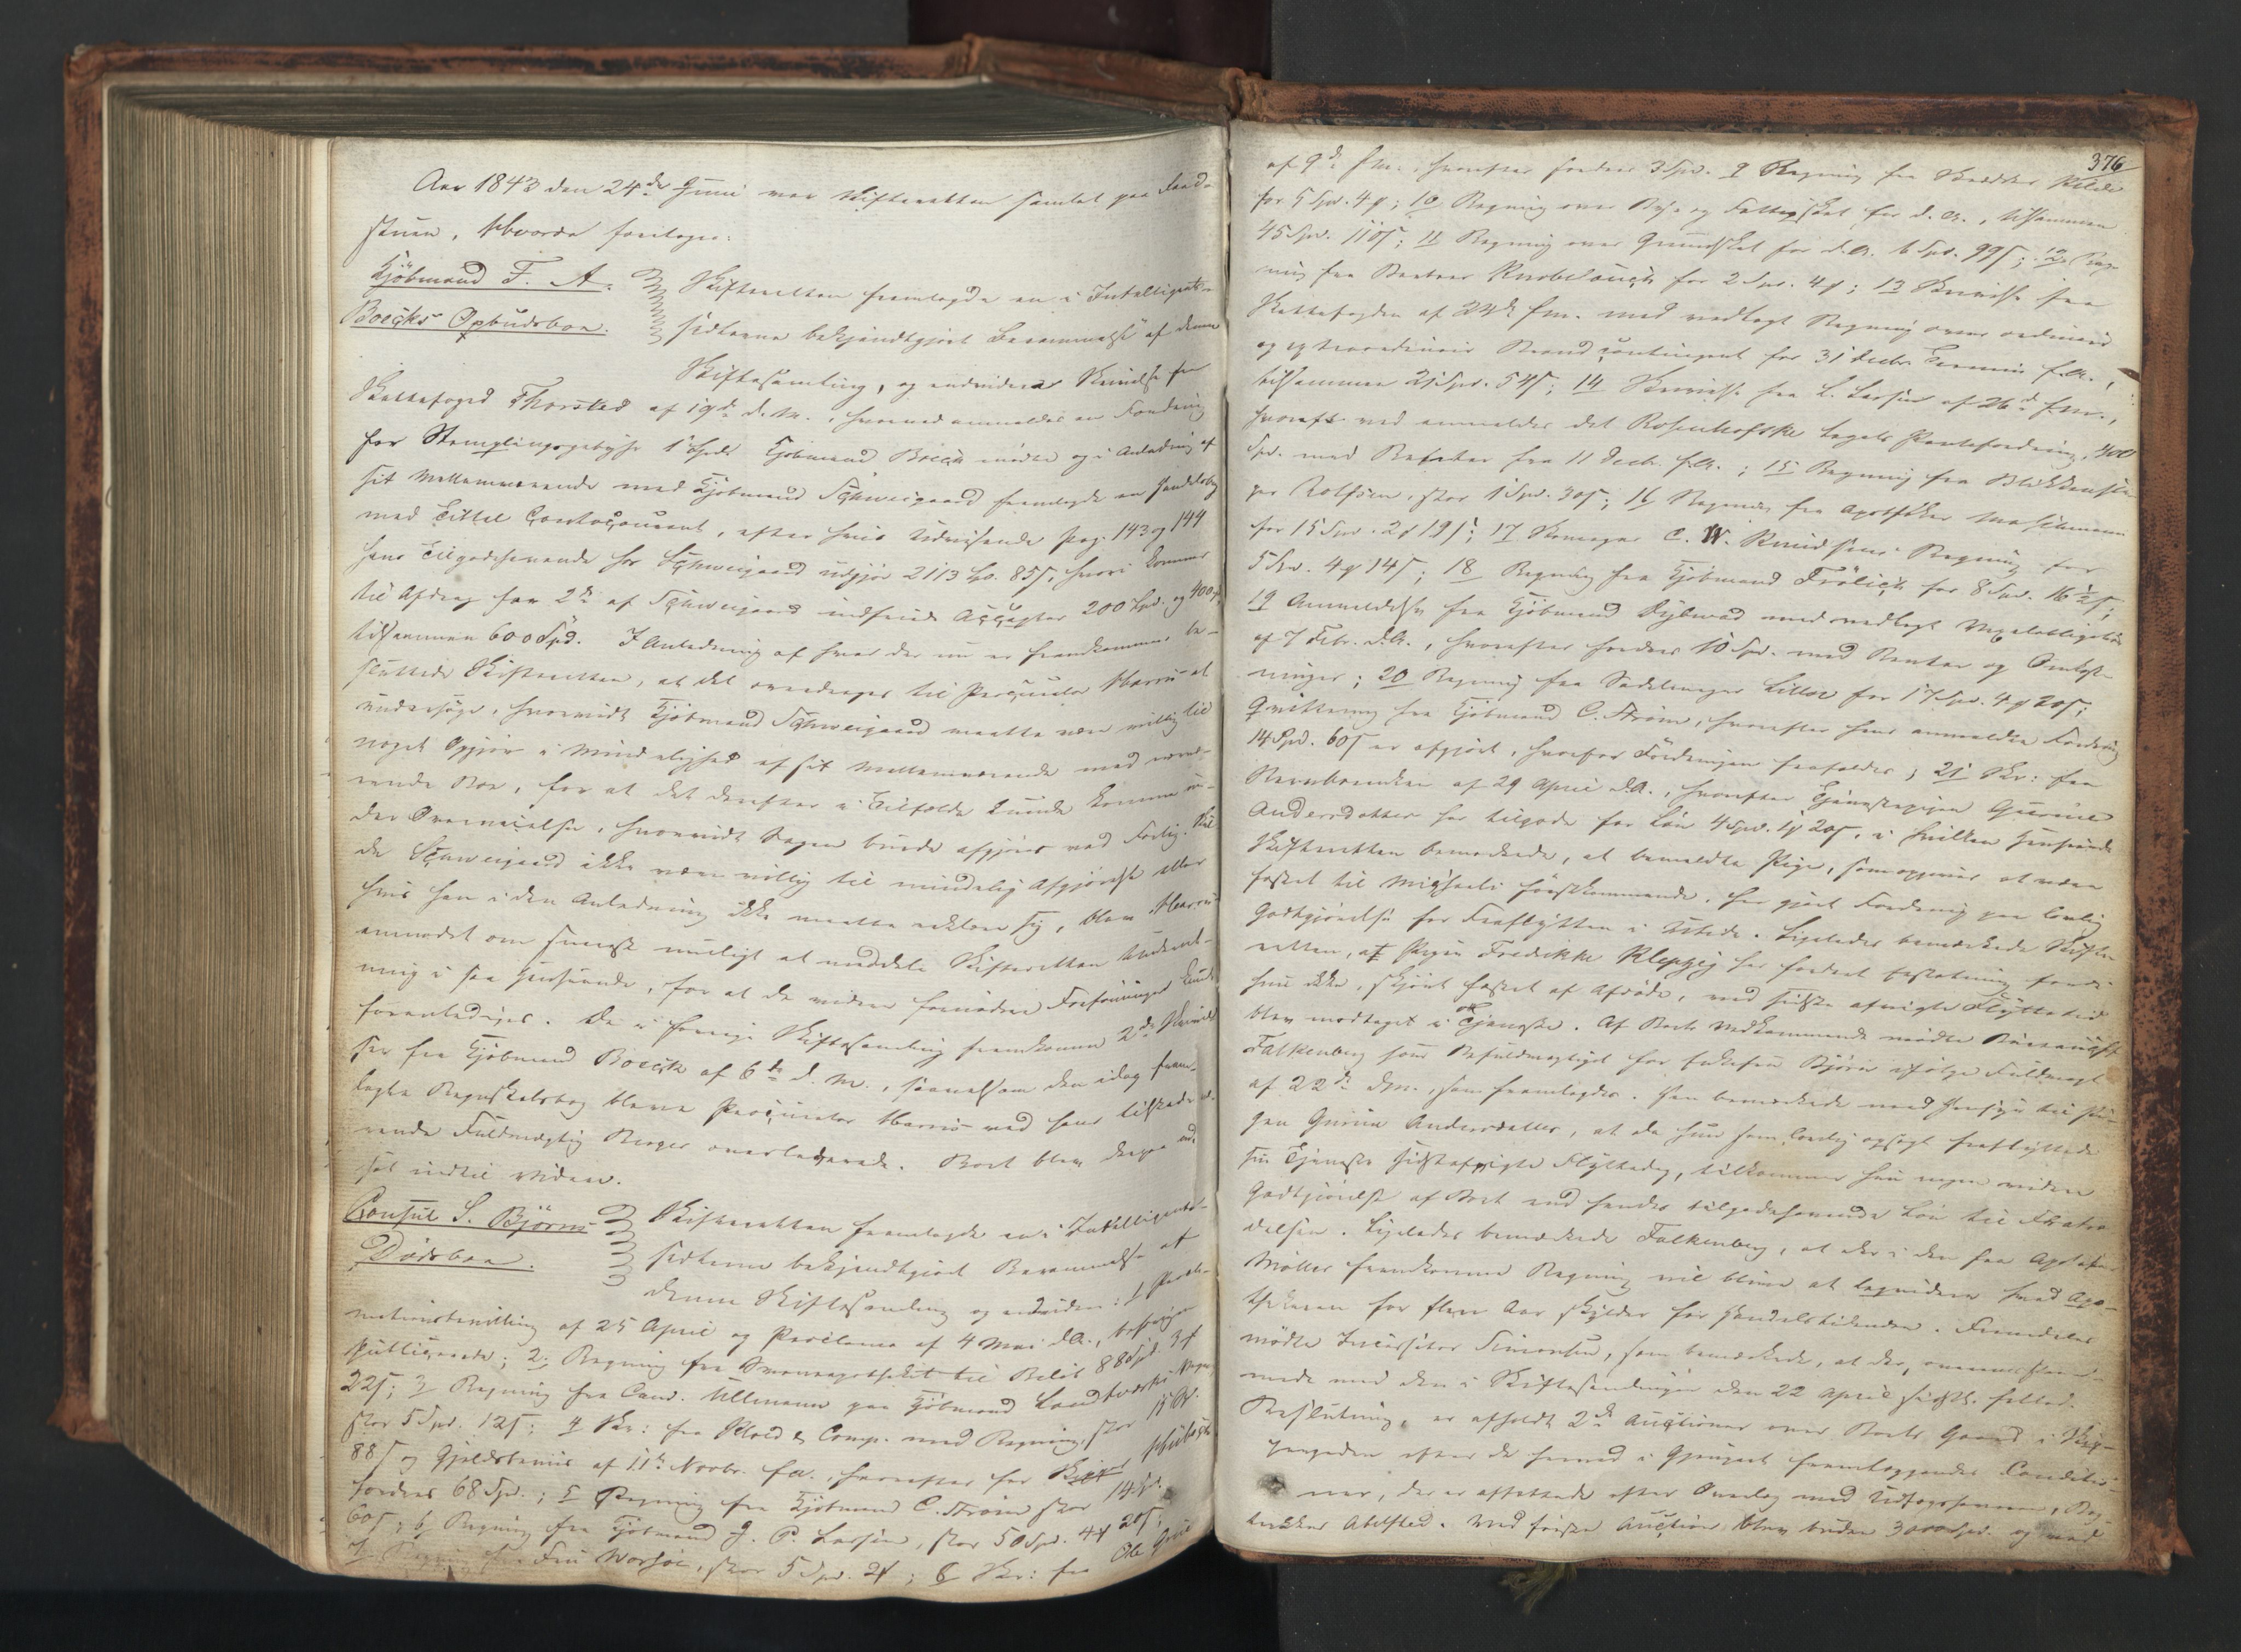 Aar 1843 den 24de Juni var Skifteretten samlet paa Raad-
stuen, hvorda foretoges:
Kjøbmand F. A. Skifteretten fremlagde en i Intelligents-
Boecks Opbudsboe. sedlerne bekjendtgjort Berammelse af denne
Skiftesamling, og endvidere Skrivelse fra
Skattefoged Thorsted af 19de d. M., hvorved anmeldes en Fordring
for Stemplingsgebyhr Kjøbmand Boeck mødte og i Anledning af
sit Mellemværende med Kjøbmand Schweigaard fremlagde en Handelsbog
med Tittel Contocourant, efter hvis Udvisende pag. 143 og 144
hans Tilgodehavende hos Schweigaard udgjør 2113 Spd. 85 s, hvori kommer
til Afdrag 2de af Schweigaard indfriede Accepter 200 Spd. og 400
tilsammen 600 Spd. I Anledning af hvad der nu er fremkommet be-
sluttede Skifteretten, at det overdrages til Procurator Harris at
undersøge, hvorvidt Kjøbmand Schweigaard maatte være villig til
noget Opgjør i Mindelighed af sit Mellemværende med nærvæ-
rende Boe, for at det derefter i Tilfælde kunde komme un-
der Overveielse, hvorvidt Sagen burde afgjøres ved Forlig. Skul-
de Schweigaard ikke være villig til mindelig Afgjørelse eller
hvis han i den Anledning ikke maatte erklære sig, blev Harris
anmodet om snarest muligt at meddele Skifteretten Underret-
ning i saa Henseende, for at de videre fornødne Forføininger kunde
foranlediges. De i forrige Skiftesamling fremkomne 2de Skrivel-
ser fra Kjøbmand Boeck af 6te d. M., saavelsom den idag frem-
lagte Regnskabsbog bleve Procurator Harris ved hans tilstedevæ-
rende Fuldmægtig Berger overleverede. Boet blev derpaa ud-
sat indtil Videre.
Consul S. Bjørns Skifteretten fremlagde en i Intelligents-
Dødsboe. sedlerne bekjendtgjort Berammelse af
denne Skiftesamling og endvidere: 1 Procla-
mationsbevilling af 25 April og Proclama af 4 Mai d.A., behørigen
publicerede; 2. Regning fra Svaneapotheket til Beløb 88 Spd. 3
22 s; 3 Regning fra Cand. Ullmann paa Kjøbmand
stor 5 Spd. 12 s; 4 Skr: fra Mold & Comp. med Regning, stor 15
88 s og Gjeldsbeviis af 11te Novbr. f.a., hvorefter
fordres 68 Spd.; 5 Regning fra Kjøbmand C. Strøm stor 14 Spd.
60 s; 6 Regning fra Kjøbmand J. P. Larsen, stor 50 Spd. 4 20 s;
7 Regning fra Fru Worsøe, stor 5 Spd. 2; 8 Skr: fra Ole
376
af 9de f.M. hvorefter fordres 3 Spd. 9 Regning fra Snedker
for 5 Spd. 4; 10 Regning over Bye- og Fattigskat for d.A., tilsammen
45 Spd. 110 s; 11 Regning over Grundskat for d.A. 6 Spd. 99 s; 12. Reg-
ning fra Knobelauch for 2 Spd. 4; 13 Skrivelse fra
Skattefogden af 22de f.M. med vedlagt Regning over ordinair
og extraordinair Brandcontingent for 31 Decbr. Termin f.A.,
tilsammen 21 Spd. 54 s; 14 Skrivelse fra L. Larsen af 26de f.M.,
hvorefter ved anmeldes det Rosenhofske Legats Pantefordring, 400
Spd. med Renter fra 11 Decb. f.A.; 15 Regning fra Blikkensla-
ger Rolfsen, stor 1 Spd. 30 s; 16 Regning fra Apotheker Maschmann
for 15 Spd. 2 19 s; 17 Skomager C. W. Knudsens Regning for
5 Spd. 4 14 s; 18 Regning fra Kjøbmand Frølich for 8 Spd. 16½ s;
19 Anmeldelse fra Kjøbmand Rybwad med vedlagt Vexelobligation
af 7 Febr. d.A., hvorefter fordres 10 Spd. med Renter og Omkost-
ninger; 20 Regning fra Sadelmager Liltved for 17 Spd. 4 20 s;
Qvittering fra Kjøbmand C. Strøm, hvorefter hans anmeldte Fordring
14 Spd. 60 s er afgjort, hvorfor Fordringen frafaldes; 21 Skr: fra
af 29 April d.A., hvorefter Tjenestepigen Gurine
Andersdatter har tilgode for Løn 4 Spd. 1 20 s, i hvilken Henseende
Skifteretten bemærkede, at bemeldte Pige, som opgives at være
fæstet til Michaeli førstkommende, har gjort Fordring paa lovlig
Godtgjørelse for Fraflytten i Utide. Ligeledes bemærkede Skifte-
retten, at Pigen Fredrikke Klepzig har fordret Erstatning fordi
hun ikke, skjønt fæstet af Afdøde, ved sidste afvigte Flyttetid
blev modtaget i Tjeneste. Af Boets Vedkommende mødte
Falkenberg som Befuldmægtiget for Enkefru Bjørn ifølge Fuldmagt
af 22de d.M., som fremlagdes. Han bemærkede med Hensyn til Pi-
gen Gurine Andersdatter, at da hun som lovlig opsagt fraflyttede
sin Tjeneste sidstafvigte Flyttedag, tilkommer hun ingen videre
Godtgjørelse af Boet end hendes tilgodehavende Løn til Fratræ-
delsen. Ligeledes bemærkede Falkenberg, at der i den fra Apotheker
Møller fremkomne Regning vil blive at liquidere hvad Apo-
thekeren for flere Aar skylder for Handelstidende. Fremdeles
mødte Incassator Simonsen, som bemærkede, at der, overensstem-
mende med den i Skiftesamlingen den 22 April sidstl. fattede
Beslutning, er afholdt 2de Auctioner over Boets Gaard i Skip-
pergaden efter de herved i Gjenpart fremlæggendes Conditio-
ner, der er affattede efter Overlæg med Udlagshaveren, Bog-
trykker Abelsted. Ved første Auction blev buden 3000 Spd. og ved